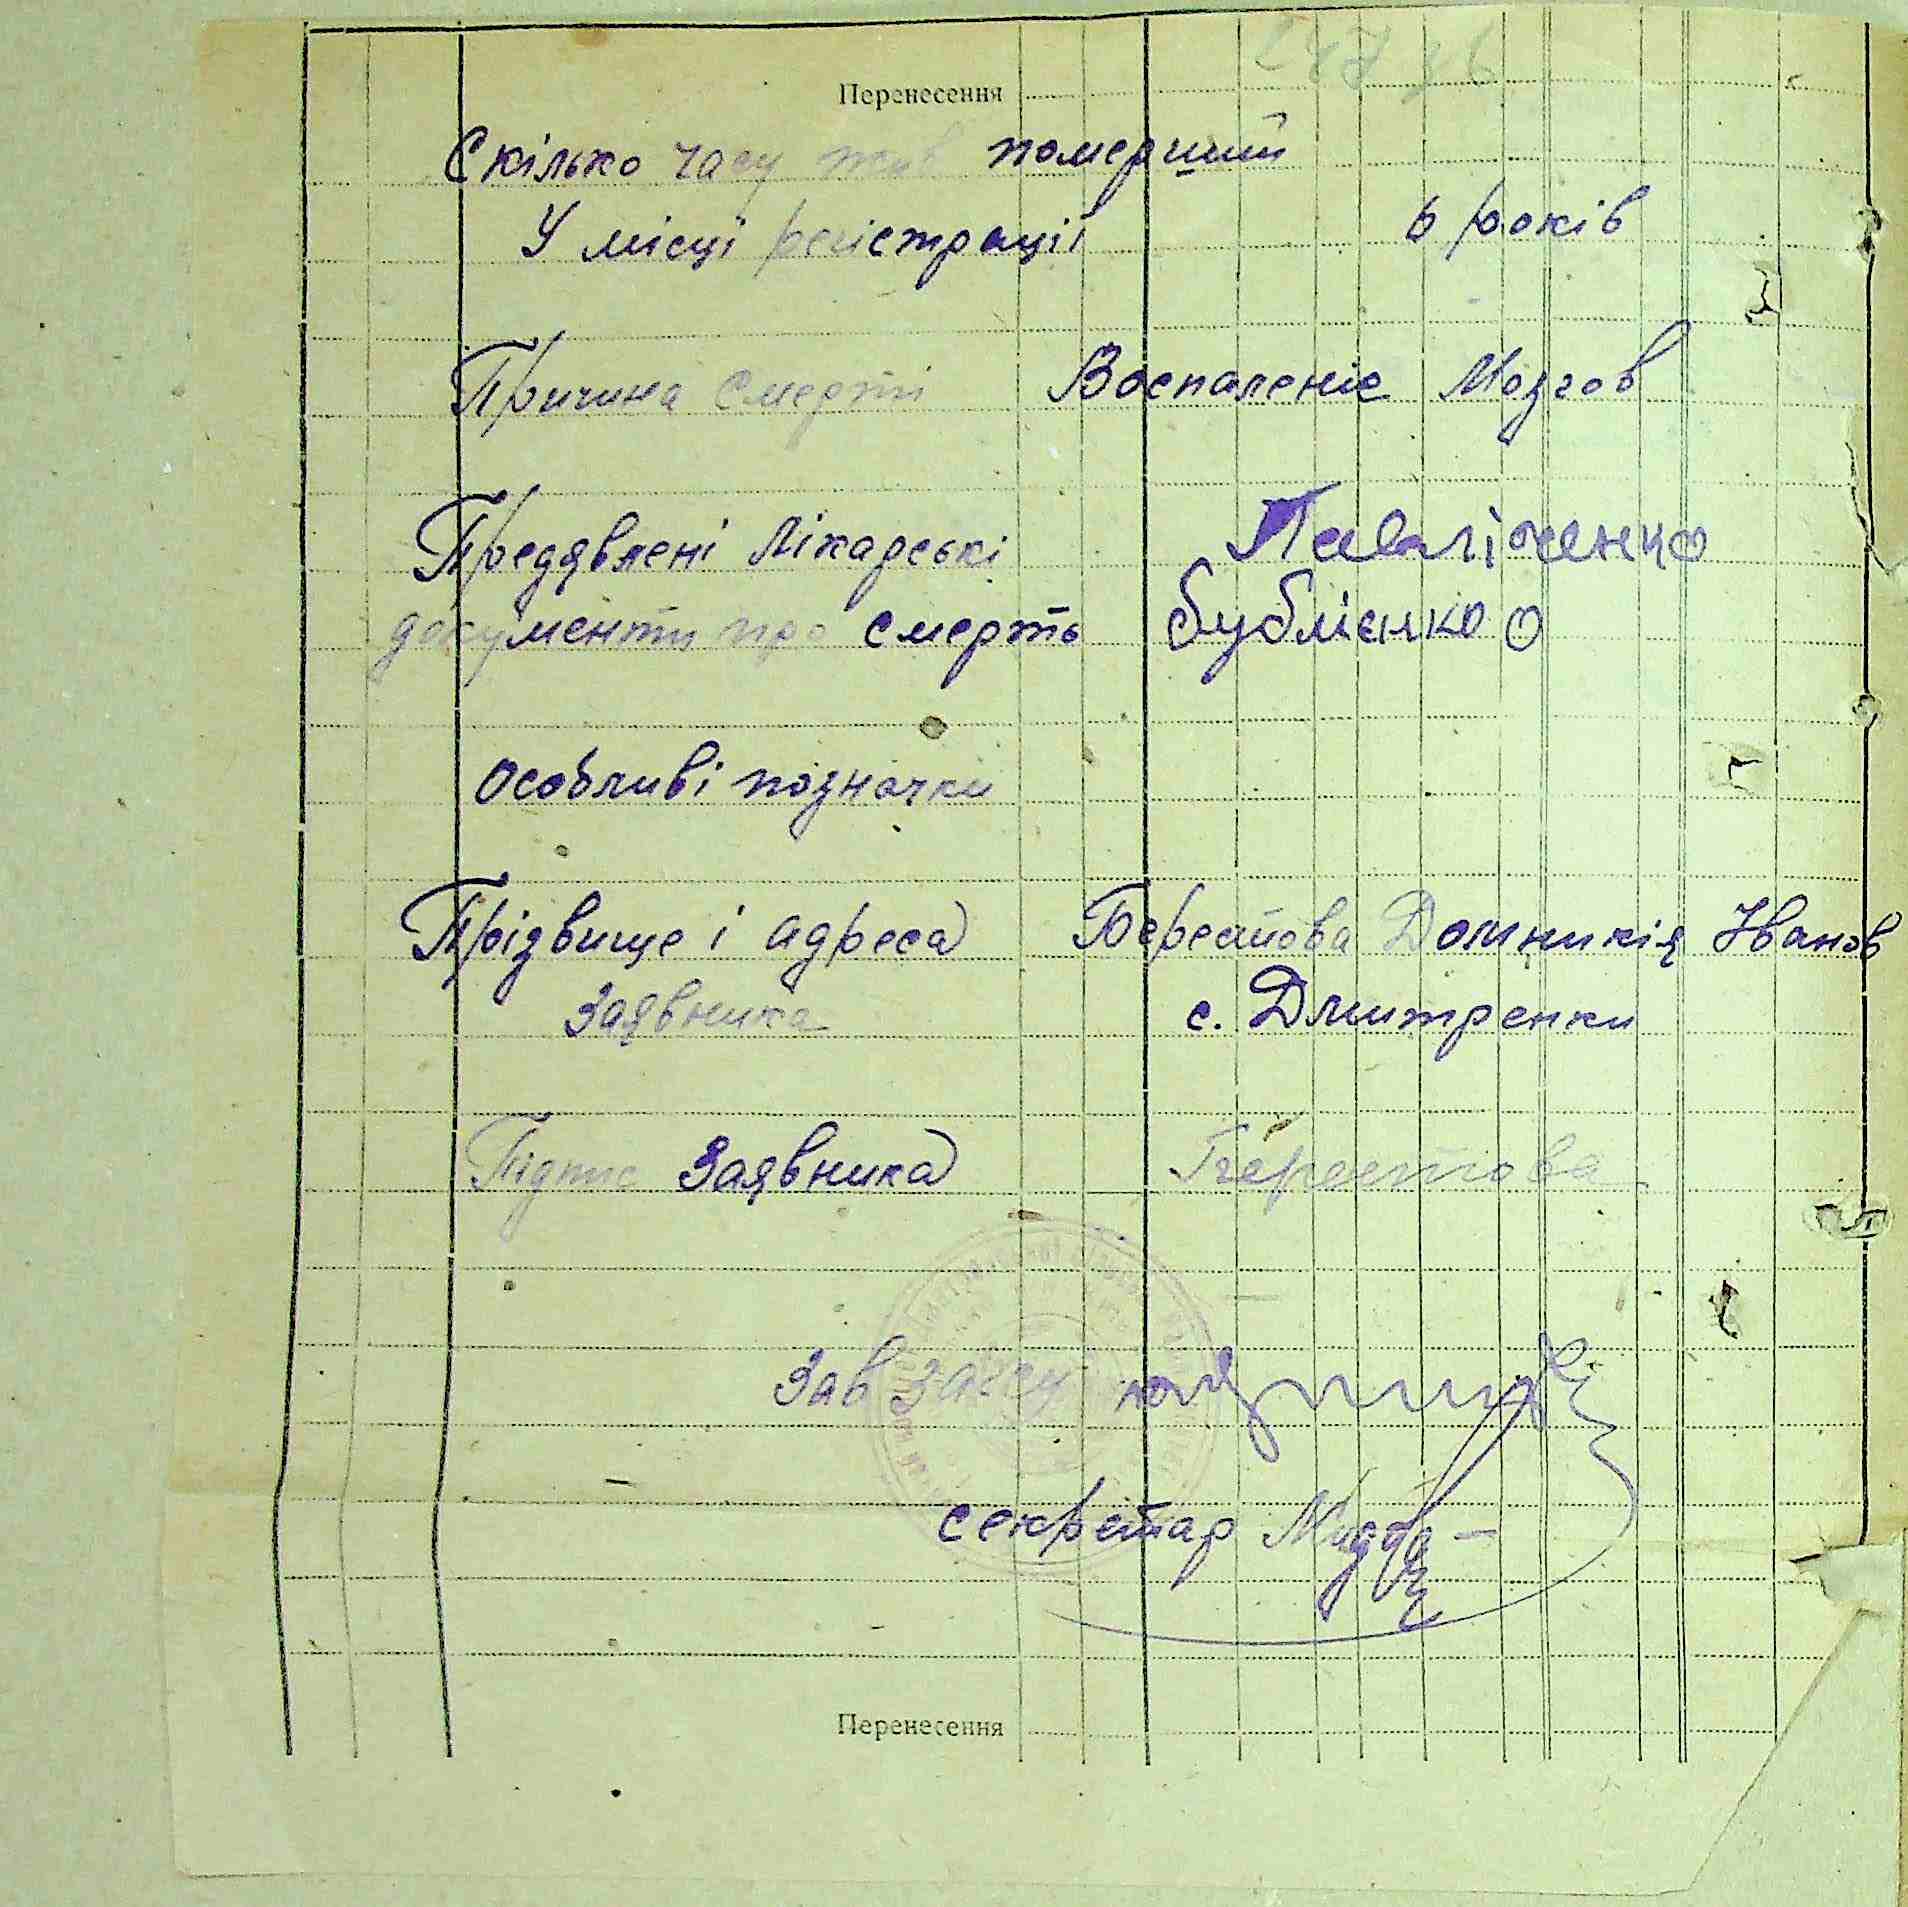 Перенесення
Скілько часу жив померший
У місці регістрації 6 років
Причина смерті Воспаленіє Мозгов
Предявлені Лікарські Павліченко
документи про смерть Бублієнко О
Особливі позначки
Прізвище і адреса Берестова Домникія Іванов
Заявника с. Дмитренки
Підпис Заявника Берестова
Зав загсу
секретар
Перенесення